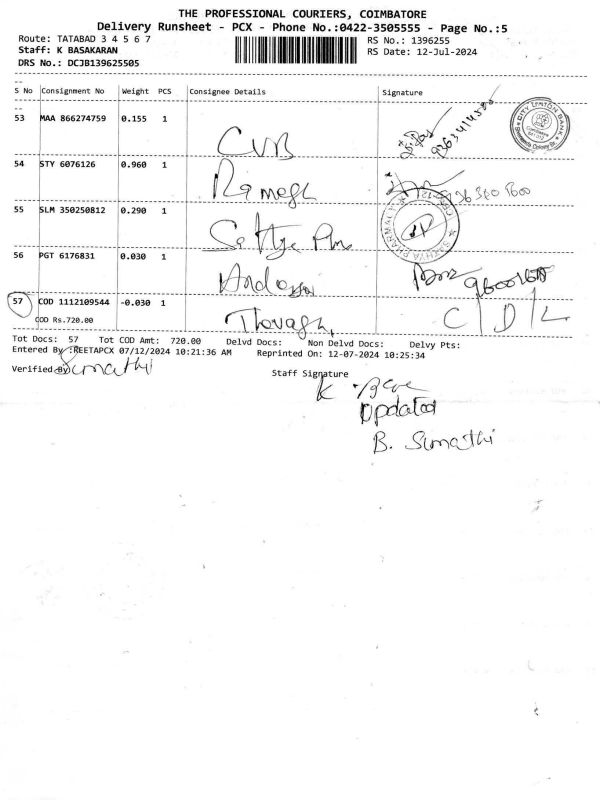 THE PROFESSIONAL COURIERS, COIMBATORE
Delivery Runsheet - PCX - Phone No.:0422-3505555 - Page No.:5
Route: TATABAD 3 4 5 6 7
RS No.: 1396255
Staff: K BASAKARAN
RS Date: 12-Jul-2024
DRS No.: DCJB139625505
S No Consignment No Weight PCS Consignee Details Signature
53 MAA 866274759 0.155 1
CUB
CITY UNION BANK
54 STY 6076126 0.960 1
Ramesh
55 SLM 350250812 0.290 1
Sathya
56 PGT 6176831 0.030 1
57 COD 1112109544 -0.030 1
COD Rs.720.00
C/D/L
Tot Docs: 57 Tot COD Amt: 720.00 Delvd Docs: Non Delvd Docs: Delvy Pts:
Entered By :REETAPCX 07/12/2024 10:21:36 AM Reprinted On: 12-07-2024 10:25:34
Verified By Sumathi
Staff Signature
Updated
B. Sumathi